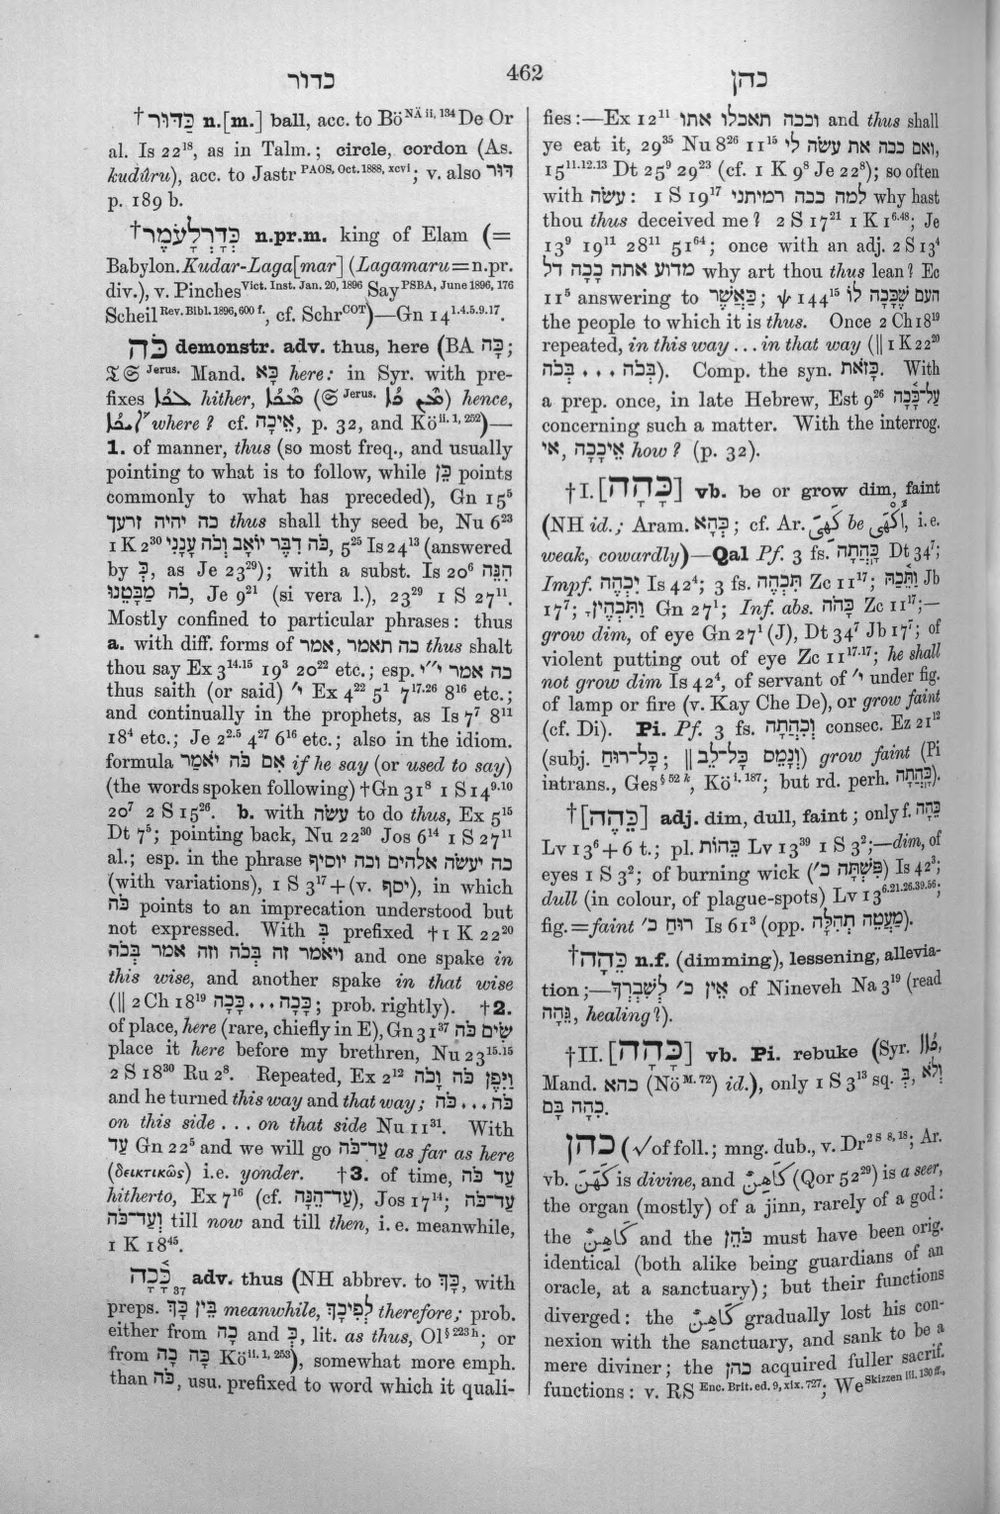 כדור
462
כהן
† כַּדּוּר n.[m.] ball, acc. to Bö NÄ ii, 134 De Or
al. Is 22¹⁸, as in Talm.; circle, cordon (As.
kudûru), acc. to Jastr PAOS, Oct. 1888, xcvi; v. also דּוּר
p. 189 b.
† כְּדָרְלָעֹמֶר n.pr.m. king of Elam (=
Babylon. Kudar-Laga[mar] (Lagamaru=n.pr.
div.), v. Pinches Vict. Inst. Jan. 20, 1896 Say PSBA, June 1896, 176
Scheil Rev. Bibl. 1896, 600 f., cf. Schr COT)—Gn 14 1.4.5.9.17.
כֹּה demonstr. adv. thus, here (BA כָּה;
Jerus. Mand. כא here: in Syr. with pre-
fixes hither, (Jerus.) hence,
where? cf. אֵיכָה, p. 32, and Kö ii. 1, 252)—
1. of manner, thus (so most freq., and usually
pointing to what is to follow, while כֵּן points
commonly to what has preceded), Gn 15⁵
כה יהיה זרעך thus shall thy seed be, Nu 6²³
1 K 2³⁰ כֹּה דִבֶּר יוֹאָב וְכֹה עָנָנִי, 5²⁵ Is 24¹³ (answered
by כְּ, as Je 23²⁹); with a subst. Is 20⁶ הִנֵּה
כֹה מַבָּטֵנוּ, Je 9²¹ (si vera l.), 23²⁹ 1 S 27¹¹.
Mostly confined to particular phrases: thus
a. with diff. forms of אמר, כה תאמר thus shalt
thou say Ex 3¹⁴·¹⁵ 19³ 20²² etc.; esp. כה אמר י״י
thus saith (or said) י׳ Ex 4²² 5¹ 7¹⁷·²⁶ 8¹⁶ etc.;
and continually in the prophets, as Is 7⁷ 8¹¹
18⁴ etc.; Je 2²·⁵ 4²⁷ 6¹⁶ etc.; also in the idiom.
formula אִם כֹּה יֹאמַר if he say (or used to say)
(the words spoken following) †Gn 31⁸ 1 S 14⁹·¹⁰
20⁷ 2 S 15²⁶. b. with עשׂה to do thus, Ex 5¹⁵
Dt 7⁵; pointing back, Nu 22³⁰ Jos 6¹⁴ 1 S 27¹¹
al.; esp. in the phrase כה יעשׂה אלהים וכה יוסיף
(with variations), 1 S 3¹⁷+(v. יסף), in which
כֹּה points to an imprecation understood but
not expressed. With בְּ prefixed †1 K 22²⁰
ויאמר זה בְּכֹה וזה אמר בְּכֹה and one spake in
this wise, and another spake in that wise
(‖ 2 Ch 18¹⁹ כָּכָה...כָּכָה; prob. rightly). †2.
of place, here (rare, chiefly in E), Gn 31³⁷ שִׂים כֹּה
place it here before my brethren, Nu 23¹⁵·¹⁵
2 S 18³⁰ Ru 2⁸. Repeated, Ex 2¹² וַיִּפֶן כֹּה וָכֹה
and he turned this way and that way; כֹּה...כֹּה
on this side ... on that side Nu 11³¹. With
עַד Gn 22⁵ and we will go עַד־כֹּה as far as here
(δεικτικῶς) i.e. yonder. †3. of time, עַד כֹּה
hitherto, Ex 7¹⁶ (cf. עַד־הֵנָּה), Jos 17¹⁴; עַד־כֹּה
וְעַד־כֹּה till now and till then, i. e. meanwhile,
1 K 18⁴⁵.
כָּכָה 37 adv. thus (NH abbrev. to כָּךְ, with
preps. בֵּין כָּךְ כָּךְ meanwhile, לְפִיכָךְ therefore; prob.
either from כָּה and כְּ, lit. as thus, Ol § 223 h; or
from כָּה כָּה Kö ii. 1, 253), somewhat more emph.
than כֹּה, usu. prefixed to word which it quali-
fies:—Ex 12¹¹ וככה תאכלו אתו and thus shall
ye eat it, 29³⁵ Nu 8²⁶ 11¹⁵ ואם ככה את עשׂה לי,
15¹¹·¹²·¹³ Dt 25⁹ 29²³ (cf. 1 K 9⁸ Je 22⁸); so often
with עשׂה: 1 S 19¹⁷ למה ככה רמיתני why hast
thou thus deceived me? 2 S 17²¹ 1 K 1⁶·⁴⁸; Je
13⁹ 19¹¹ 28¹¹ 51⁶⁴; once with an adj. 2 S 13⁴
מדוע אתה כָּכָה דל why art thou thus lean? Ec
11⁵ answering to כַּאֲשֶׁר; ψ 144¹⁵ העם שֶׁכָּכָה לּוֹ
the people to which it is thus. Once 2 Ch 18¹⁹
repeated, in this way ... in that way (‖ 1 K 22²⁰
בְּכֹה ... בְּכֹה). Comp. the syn. כָּזֹאת. With
a prep. once, in late Hebrew, Est 9²⁶ עַל־כָּכָה
concerning such a matter. With the interrog.
אי, אֵיכָכָה how? (p. 32).
†I. [כָּהָה] vb. be or grow dim, faint
(NH id.; Aram. כְּהָא; cf. Ar. كَهِىَ be أَكْهَى, i.e.
weak, cowardly)—Qal Pf. 3 fs. כָּהֲתָה Dt 34⁷;
Impf. יִכְהֶה Is 42⁴; 3 fs. תִּכְהֶה Zc 11¹⁷; וַתֵּכַהּ Jb
17⁷; וַתִּכְהֶיןָ Gn 27¹; Inf. abs. כָּהֹה Zc 11¹⁷;—
grow dim, of eye Gn 27¹ (J), Dt 34⁷ Jb 17⁷; of
violent putting out of eye Zc 11¹⁷·¹⁷; he shall
not grow dim Is 42⁴, of servant of י׳ under fig.
of lamp or fire (v. Kay Che De), or grow faint
(cf. Di). Pi. Pf. 3 fs. וְכִהֲתָה consec. Ez 21¹²
(subj. כָּל־רוּחַ; ‖ וְנָמֵס כָּל־לֵב) grow faint (Pi
intrans., Ges § 52 k, Kö i. 187; but rd. perh. כָּהֲתָה).
†[כֵּהֶה] adj. dim, dull, faint; only f. כֵּהָה
Lv 13⁶+6 t.; pl. כֵּהוֹת Lv 13³⁹ 1 S 3²;—dim, of
eyes 1 S 3²; of burning wick (פִּשְׁתָּה כ׳) Is 42³;
dull (in colour, of plague-spots) Lv 13⁶·²¹·²⁶·³⁹·⁵⁶;
fig.=faint רוּחַ כ׳ Is 61³ (opp. מַעֲטֵה תְהִלָּה).
†כֵּהָה n.f. (dimming), lessening, allevia-
tion;—אֵין כ׳ לְשִׁבְרֶךָ of Nineveh Na 3¹⁹ (read
גֵּהָה, healing?).
†II. [כָּהָה] vb. Pi. rebuke (Syr.
Mand. כהא (Nö M. 72) id.), only 1 S 3¹³ sq. בְּ, וְלֹא
כִהָה בָּם.
כהן (√ of foll.; mng. dub., v. Dr 2 S 8, 18; Ar.
vb. كَهَنَ is divine, and كَاهِنٌ (Qor 52²⁹) is a seer,
the organ (mostly) of a jinn, rarely of a god:
the كَاهِنٌ and the כֹּהֵן must have been orig.
identical (both alike being guardians of an
oracle, at a sanctuary); but their functions
diverged: the كَاهِنٌ gradually lost his con-
nexion with the sanctuary, and sank to be a
mere diviner; the כהן acquired fuller sacrif.
functions: v. RS Enc. Brit. ed. 9, xix. 727; We Skizzen iii. 130 ff.,